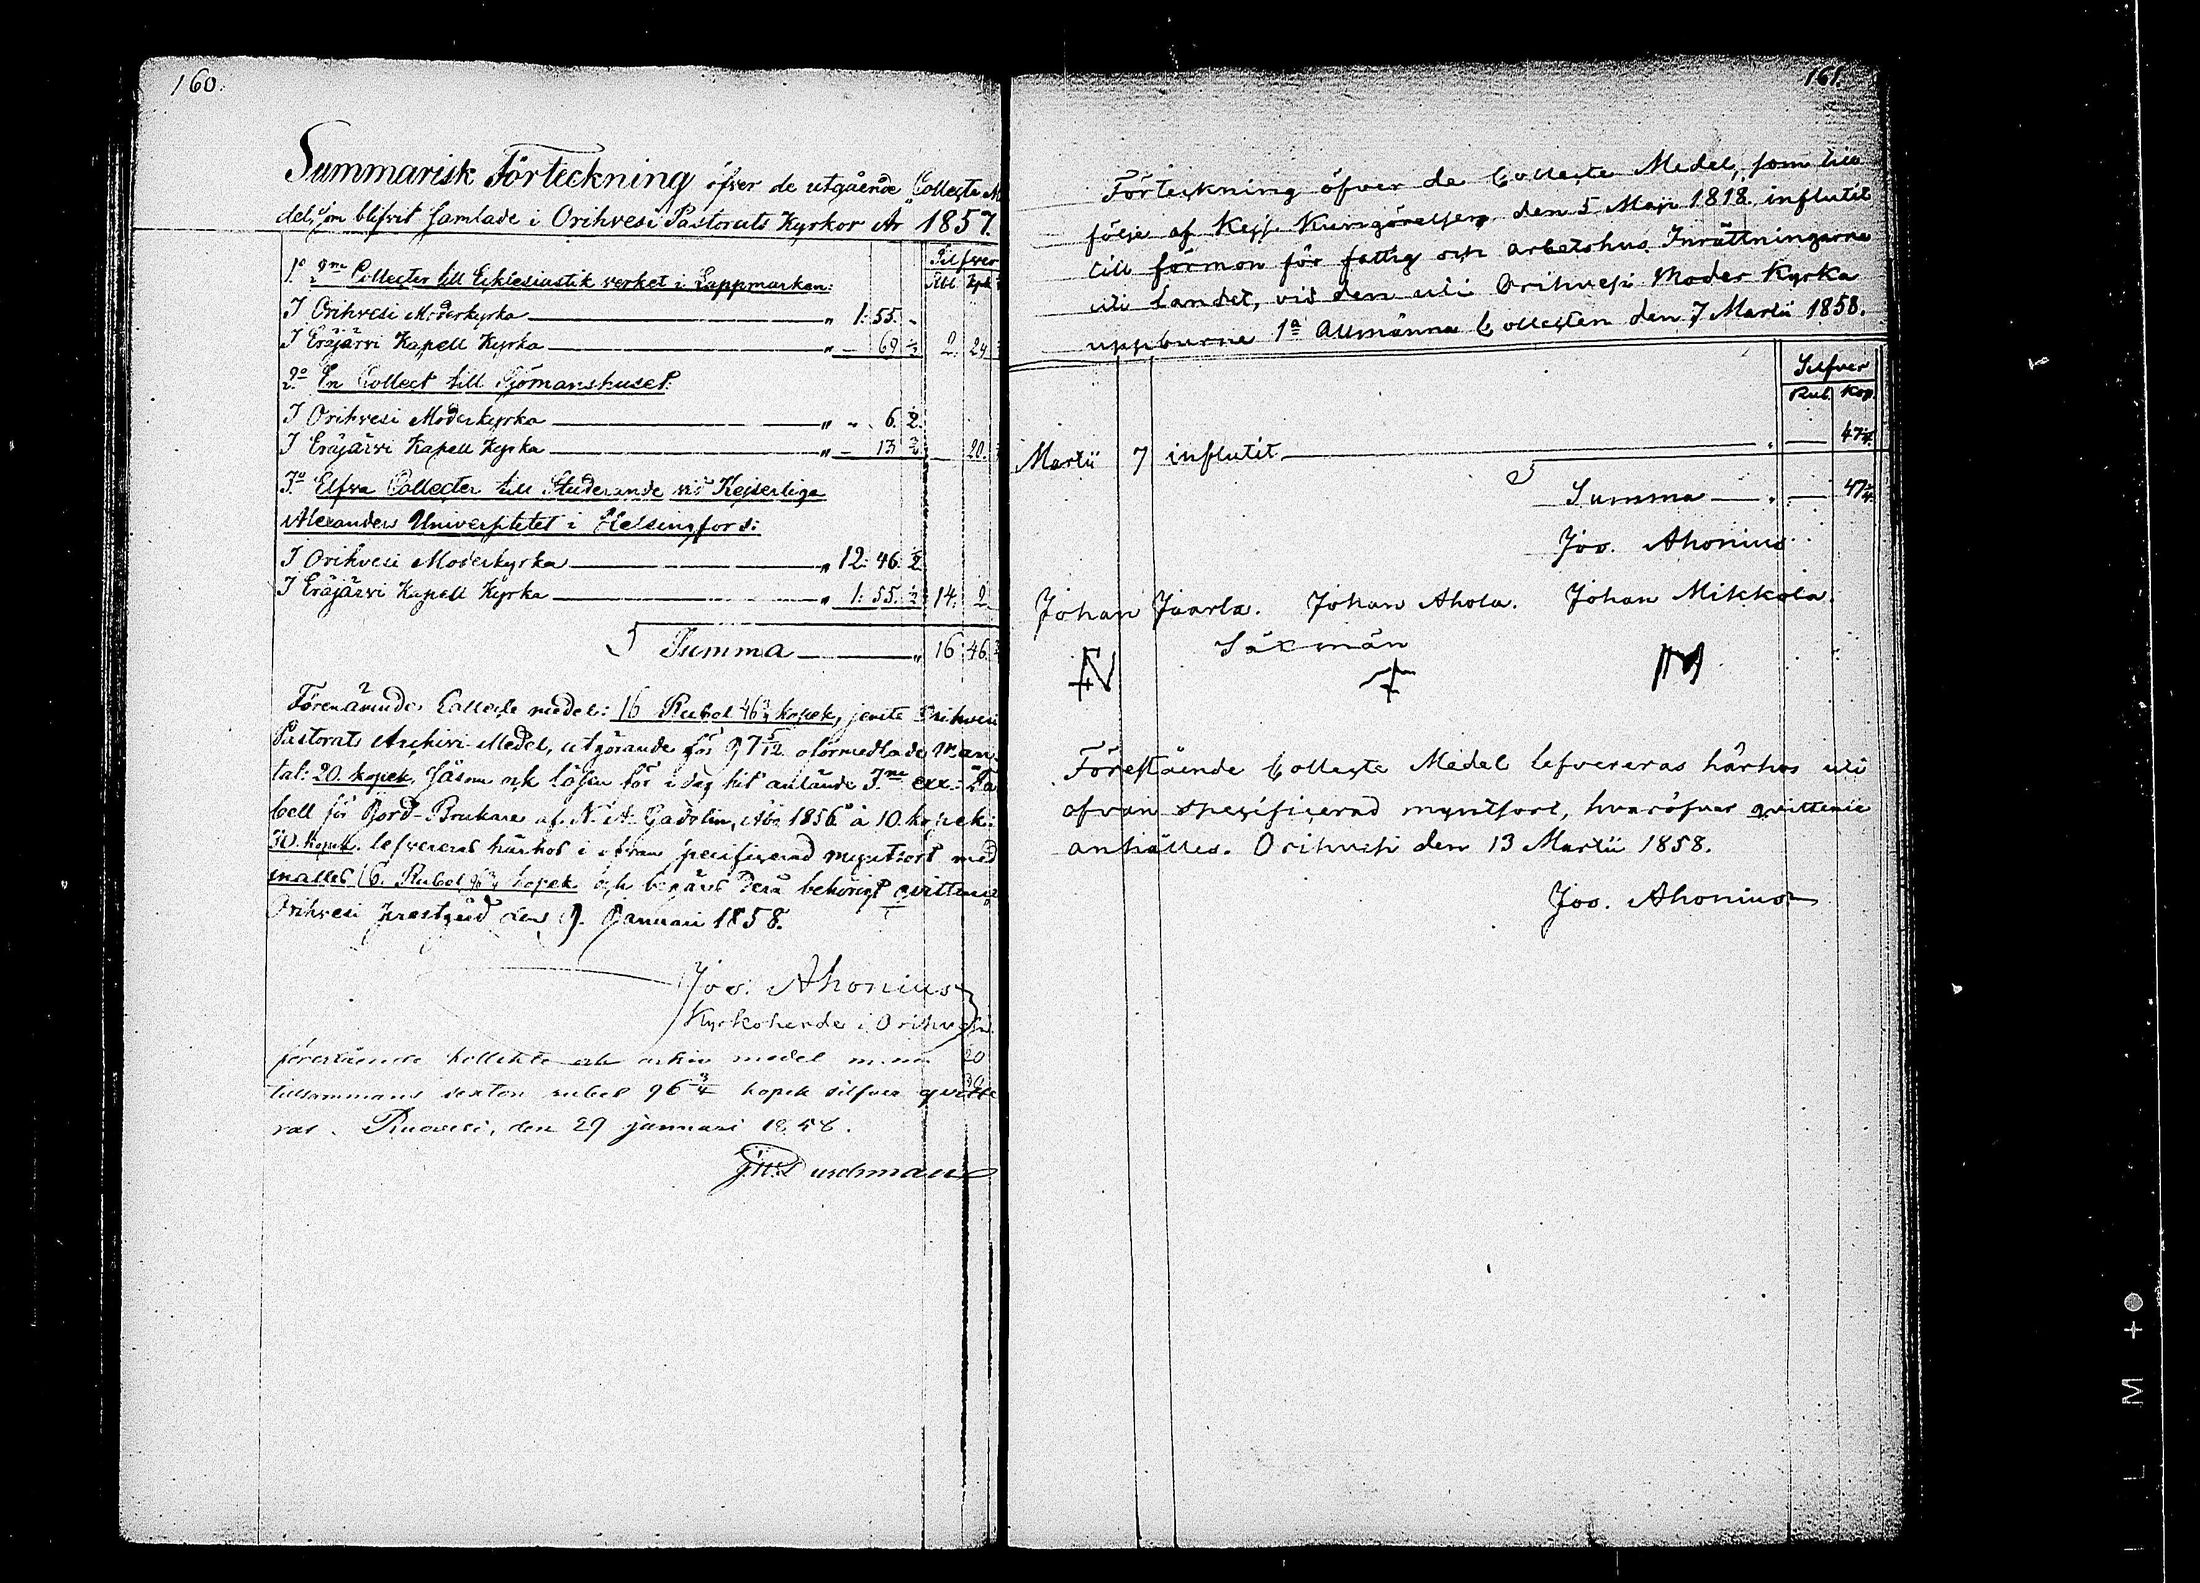 160.
Summarisk Förteckning öfver de utgående Collecte Me
del, som blifvit samlade i Orihvesi Pastorats Kyrkor År 1857.
Silfver
Rbl Kpk
1o 2ne Collecter till Ecklesiastik verket i Lappmarken:
I Orihvesi Moderkyrka — „ 1: 55. -
I Eräjärvi Kapell Kyrka — „ - 69 2. 24
2o En Collect till Sjömanshuset:
I Orihvesi Moderkyrka — „ - 6. ½
I Eräjärvi Kapell Kyrka — „ - 13 20.
3o Elfva Collecter till Studerande vid Kejserliga
Alexanders Universitetet i Helsingfors:
I Orihvesi Moderkyrka — „ 12: 46. ½
I Eräjärvi Kapell Kyrka — „ 1: 55. ½ 14. 2.
Summa — „ 16. 46.
Förenämnde Collecte medel: 16 Rubel 46¾ kopek, jemte Orihvesi
Pastorats Archivi-Medel, utgörande för 97 5/12 oförmedlade Man-
tal: 20. kopek, såsom ock lösen för i dag hit anlände 3ne exx: Ta
bell för Jord-Brukare af N. A. Gadolin, Åbo 1856 à 10. kopek:
30. kopek. lefvereras härhos i ofvan specificerad myntsort med
inalles 16. Rubel 96¾ kopek och begäres derå behörigt qvittence
Orihvesi prestgård den 9. Januari 1858.
Jos. Ahonius
Kyrkoherde i Orihvesi.
förestående kollekte och arkiv medel m.m. 20
30
tillsammans sexton rubel 96 ¾ kopek silfver qvitte
ras. Ruovesi, den 29 januari 1858.
161.
Förteckning öfver de Collecte Medel, som till
följe af Kejs. Kungörelsen den 5 Maji 1818. influtit
till förmon för fattig och arbetshus Inrättningarne
uti Landet, vid den uti Orihvesi Moder Kyrka
uppburne 1a Allmänna Collecten den 7 Martii 1858.
Silfver
Rub. Kop.
Martii 7 influtit — 47
Summa — 47
Jos. Ahonius
Johan Jaarla. Johan Ahola. Johan Mikkola.
Säxmän
Förestående Collecte Medel lefvereras härhos uti
ofvan specificerad myntsort, hvaröfver qvittence
anhålles. Orihvesi den 13 Martii 1858.
Jos. Ahonius